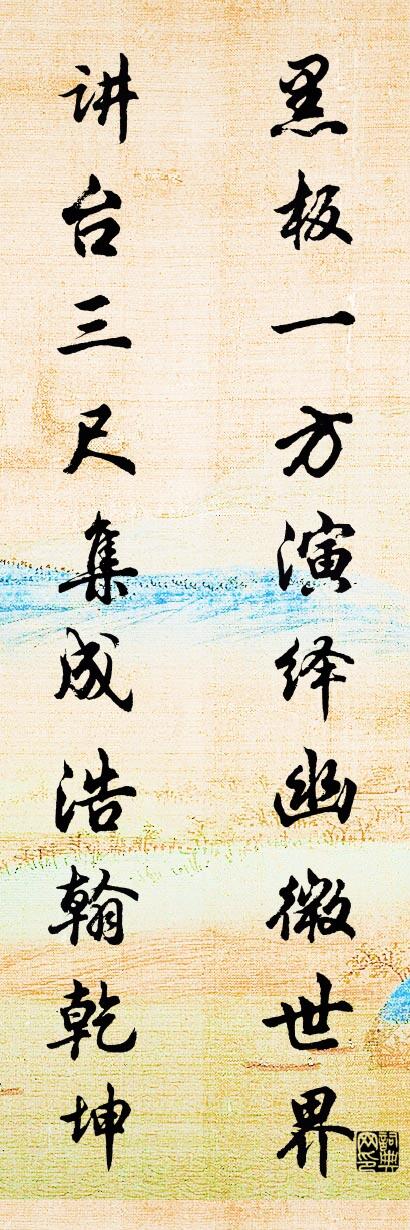 黑板一方演绎幽微世界
讲台三尺集成浩瀚乾坤
词典网印